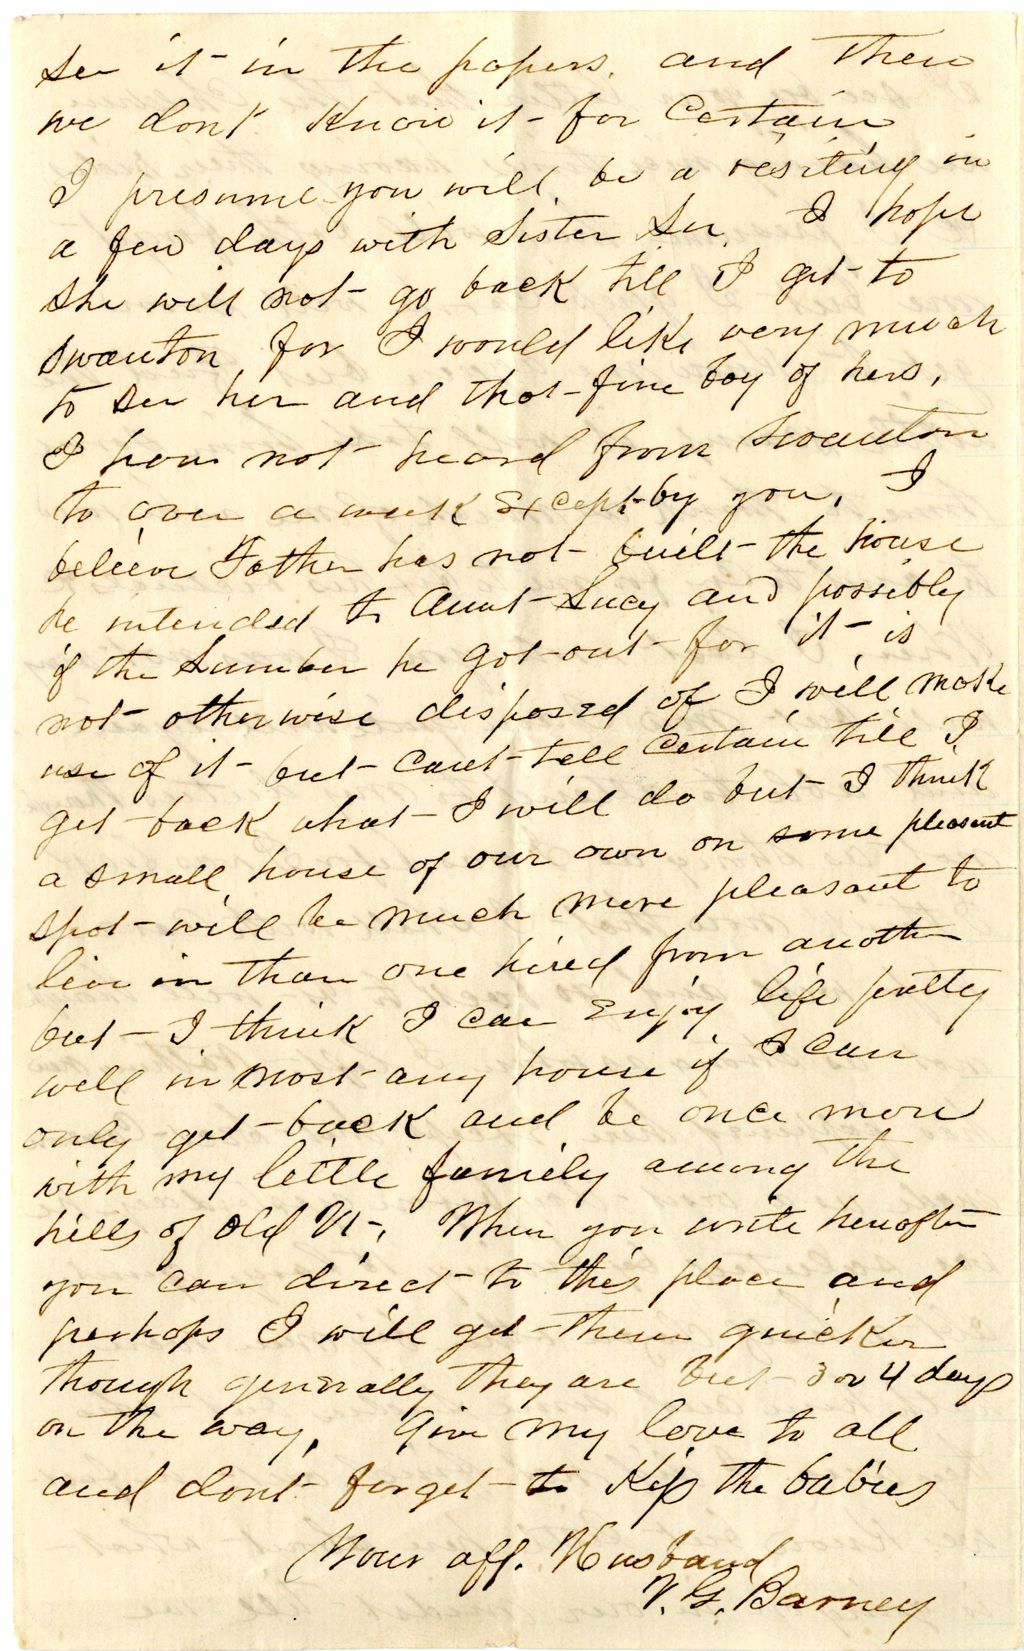 see it in the papers, and then
we dont know it for certain
I presume you will be a visiting in
a few days with Sister Su. I hope
she will not go back till I get to
Swanton for I would like very much
to see her and that fine boy of hers,
I have not heard from Swanton
to over a week except by you, I
believe Father has not built the house
he intended to Aunt Lucy and possibly
if the lumber he got out for it is
not otherwise disposed of I will make
use of it but cant tell certain till I
get back what I will do but I think
a small house of our own on some pleasant
spot will be much more pleasant to
live in than one hired from another
but I think I can enjoy life pretty
well in most any house if I can
only get back and be once more
with my little family among the
hills of old Vt, When you write hereafter
you can direct to this place and
perhaps I will get them quicker
though generally they are but 3 or 4 days
on the way, Give my love to all
and dont forget to kiss the babies
Your aff. Husband
V. G. Barney